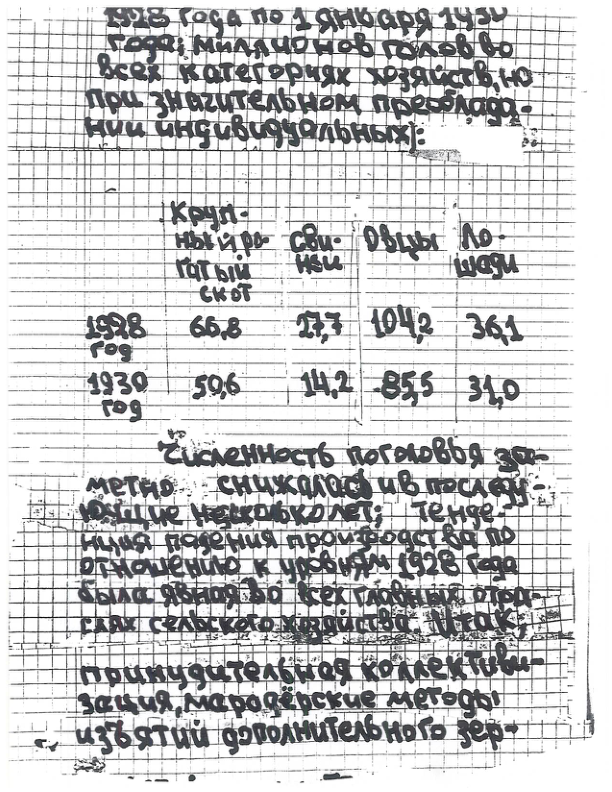 1928 года по 1 января 1930
года; миллионов голов во
всех категориях хозяйств, но
при значительном преоблада-
нии индивидуальных):
Круп-
ный ро-
гатый
скот
Сви-
ньи
Овцы
Ло-
шади
1928 год 66,8 27,7 104,2 36,1
1930 год 50,6 14,2 85,5 31,0
Численность поголовья за-
метно снижалась и в последу-
ющие несколько лет; тенден-
ция падения производства по
отношению к уровням 1928 года
была явная во всех главных отра-
слях сельского хозяйства. Итак,
принудительная коллективи-
зация, мародёрские методы
изъятий дополнительного зер-